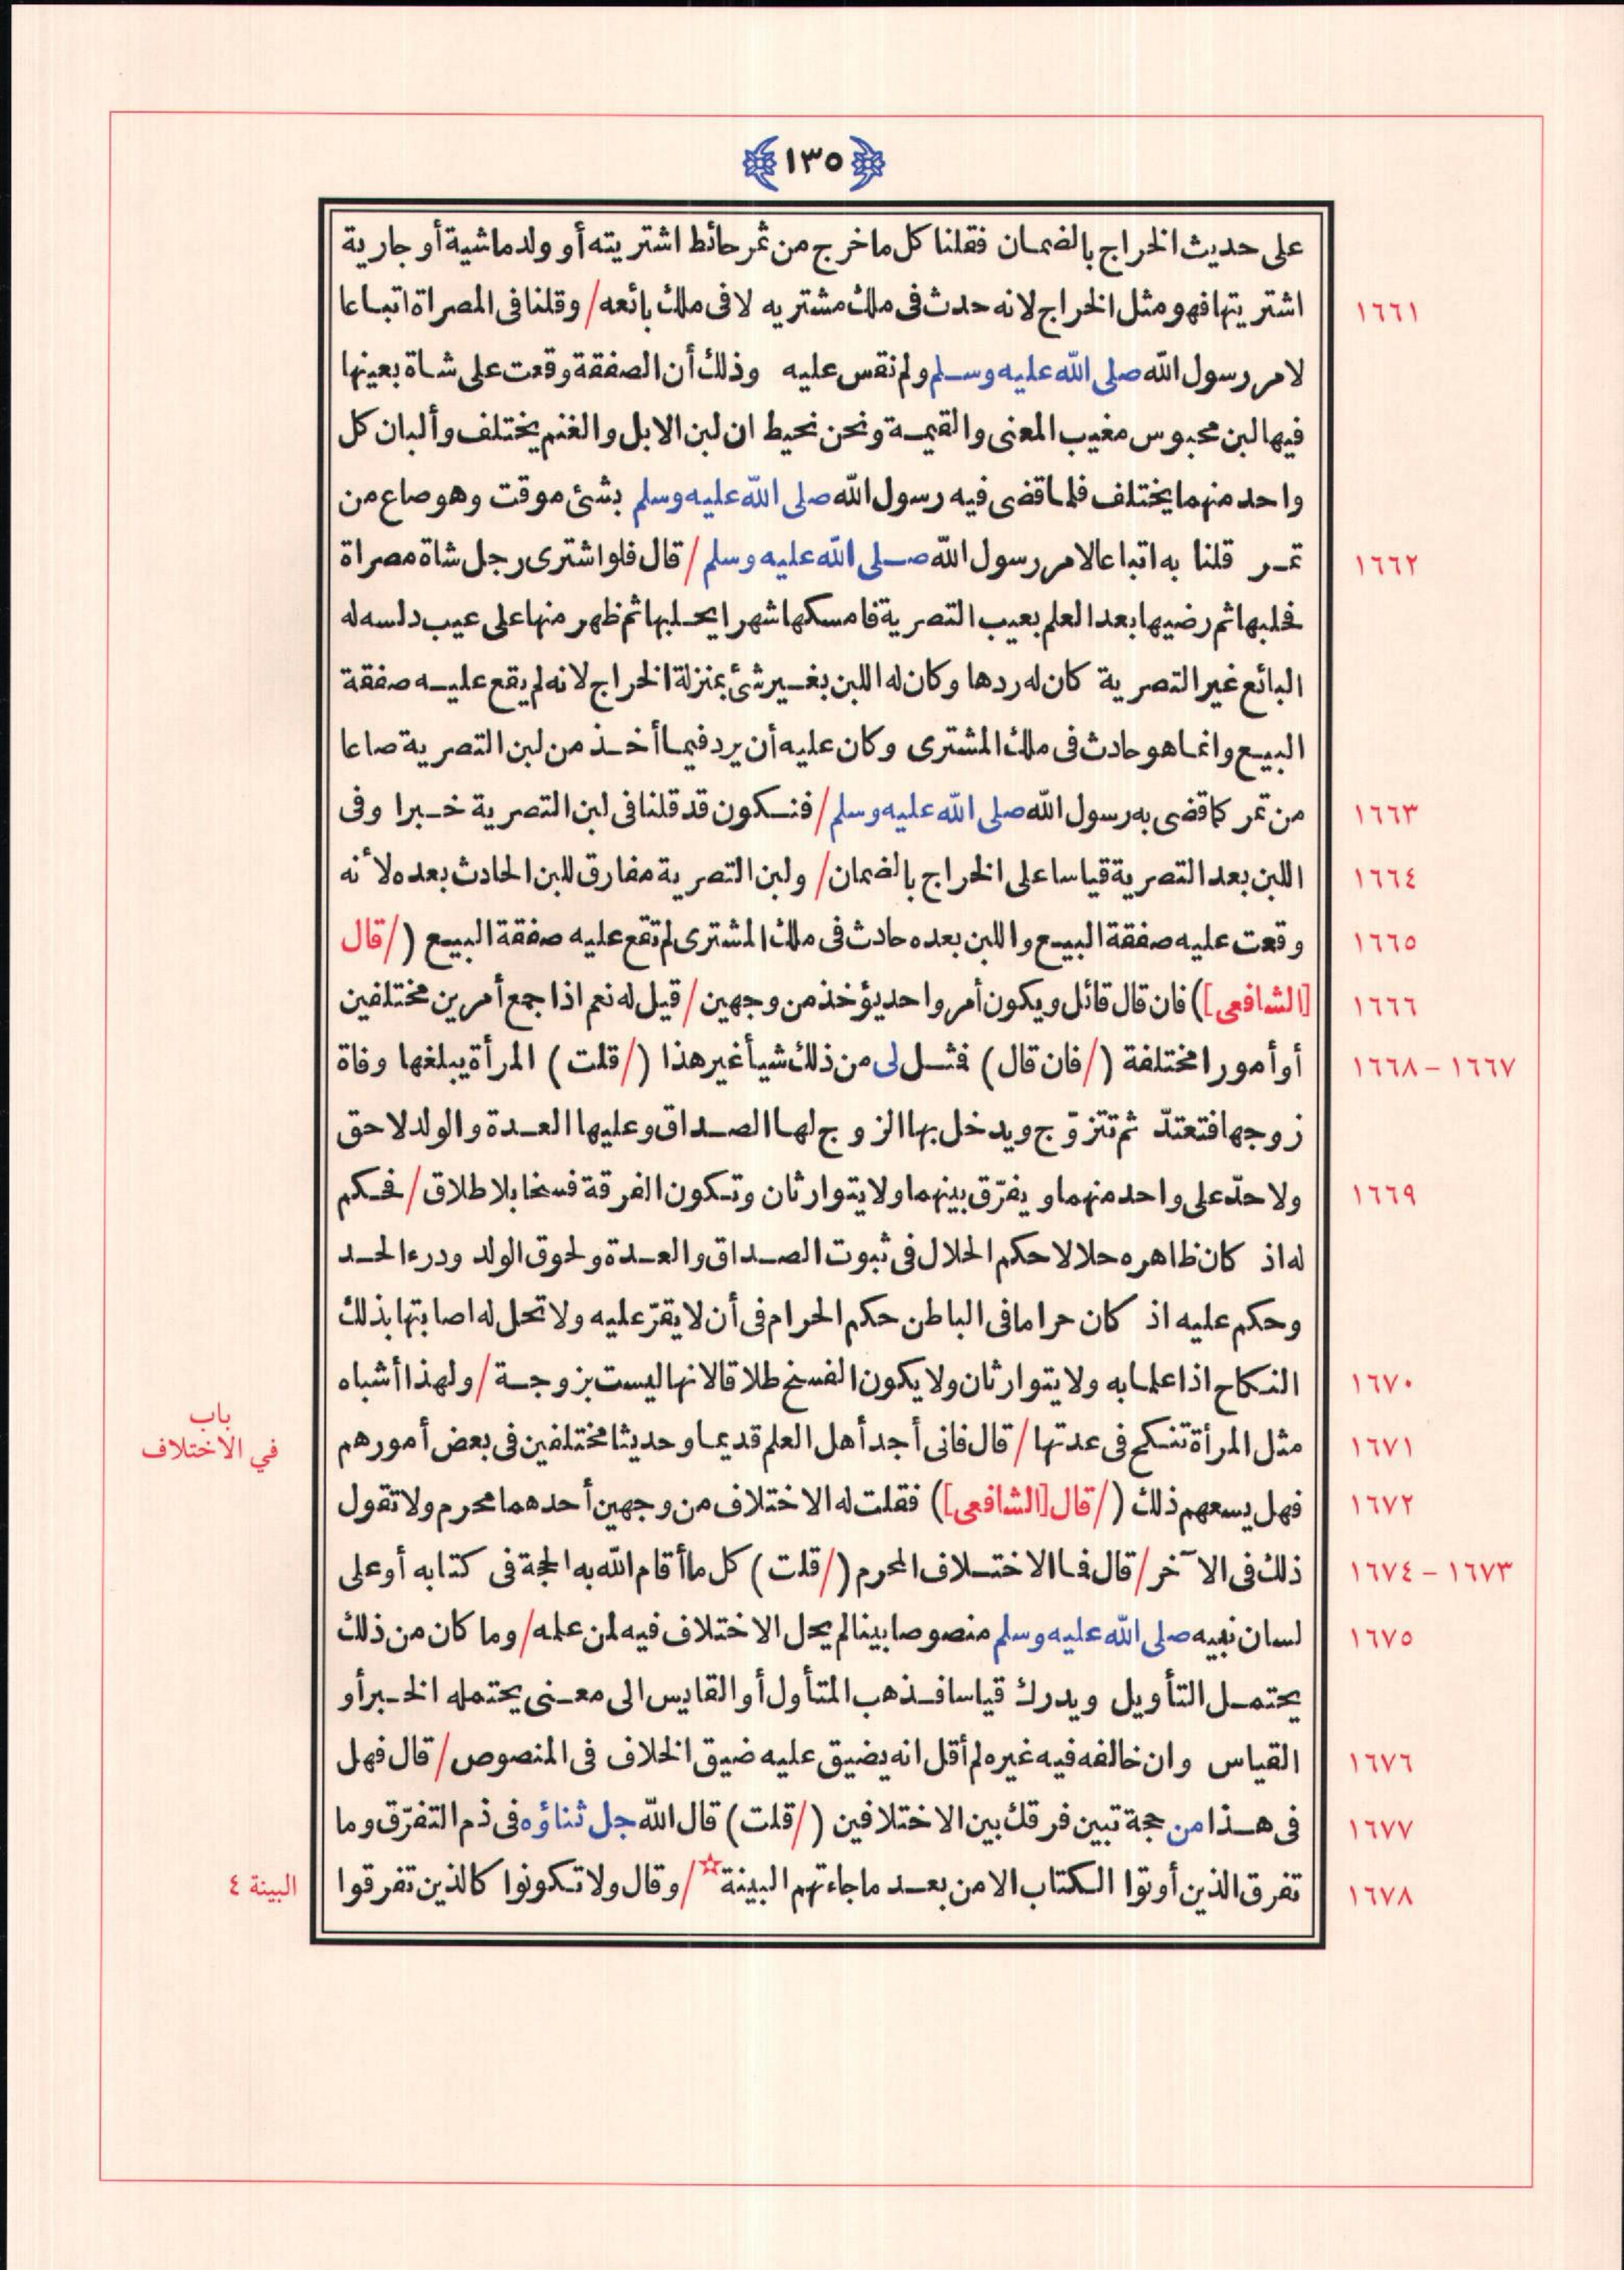 ﴿١٣٥﴾
على حديث الخراج بالضمان فقلنا كل ما خرج من ثمر حائط اشتريته أو ولد ماشية أو جارية
١٦٦١ اشتريتها فهو مثل الخراج لانه حدث فى ملك مشتريه لا فى ملك بائعه/ وقلنا فى المصراة اتباعا
لامر رسول الله صلى الله عليه وسلم ولم نقس عليه وذلك أن الصفقة وقعت على شاة بعينها
فيها لبن محبوس مغيب المعنى والقيمة ونحن نحيط ان لبن الابل والغنم يختلف وألبان كل
واحد منهما يختلف فلما قضى فيه رسول الله صلى الله عليه وسلم بشئ موقت وهو صاع من
١٦٦٢ تمر قلنا به اتباعا لامر رسول الله صلى الله عليه وسلم/ قال فلو اشترى رجل شاة مصراة
فحلبها ثم رضيها بعد العلم بعيب التصرية فامسكها شهرا يحلبها ثم ظهر منها على عيب دلسه له
البائع غير التصرية كان له ردها وكان له اللبن بغير شئ بمنزلة الخراج لانه لم يقع عليه صفقة
البيع وانما هو حادث فى ملك المشترى وكان عليه أن يرد فيما أخذ من لبن التصرية صاعا
١٦٦٣ من تمر كما قضى به رسول الله صلى الله عليه وسلم/ فنكون قد قلنا فى لبن التصرية خبرا وفى
١٦٦٤ اللبن بعد التصرية قياسا على الخراج بالضمان/ ولبن التصرية مفارق للبن الحادث بعده لأنه
١٦٦٥ وقعت عليه صفقة البيع واللبن بعده حادث فى ملك المشترى لم تقع عليه صفقة البيع (/قال
١٦٦٦ [الشافعى]) فان قال قائل ويكون أمر واحد يؤخذ من وجهين/ قيل له نعم اذا جمع أمرين مختلفين
١٦٦٧ - ١٦٦٨ أو أمورا مختلفة (/فان قال) فمثل لى من ذلك شيأ غير هذا (/قلت) المرأة يبلغها وفاة
زوجها فتعتدّ ثم تتزوّج ويدخل بها الزوج لها الصداق وعليها العدة والولد لاحق
١٦٦٩ ولا حدّ على واحد منهما ويفرّق بينهما ولا يتوارثان وتكون الفرقة فسخا بلا طلاق/ فحكم
له اذ كان ظاهره حلالا حكم الحلال فى ثبوت الصداق والعدة ولحوق الولد ودرء الحد
وحكم عليه اذ كان حراما فى الباطن حكم الحرام فى أن لا يقرّ عليه ولا تحل له اصابتها بذلك
١٦٧٠ النكاح اذا علما به ولا يتوارثان ولا يكون الفسخ طلاقا لانها ليست بزوجة/ ولهذا أشباه
باب
في الاختلاف
١٦٧١ مثل المرأة تنكح فى عدتها/ قال فانى أجد أهل العلم قديما وحديثا مختلفين فى بعض أمورهم
١٦٧٢ فهل يسعهم ذلك (/قال [الشافعى]) فقلت له الاختلاف من وجهين أحدهما محرم ولا تقول
١٦٧٣ - ١٦٧٤ ذلك فى الآخر/ قال فما الاختلاف المحرم (/قلت) كل ما أقام الله به الحجة فى كتابه أو على
١٦٧٥ لسان نبيه صلى الله عليه وسلم منصوصا بينا لم يحل الاختلاف فيه لمن علمه/ وما كان من ذلك
يحتمل التأويل ويدرك قياسا فذهب المتأول أو القايس الى معنى يحتمله الخبر أو
١٦٧٦ القياس وان خالفه فيه غيره لم أقل انه يضيق عليه ضيق الخلاف فى المنصوص/ قال فهل
١٦٧٧ فى هذا من حجة تبين فرقك بين الاختلافين (/قلت) قال الله جل ثناؤه فى ذم التفرّق وما
١٦٧٨ تفرق الذين أوتوا الكتاب الا من بعد ما جاءتهم البينة☆/ وقال ولا تكونوا كالذين تفرقوا
البينة ٤